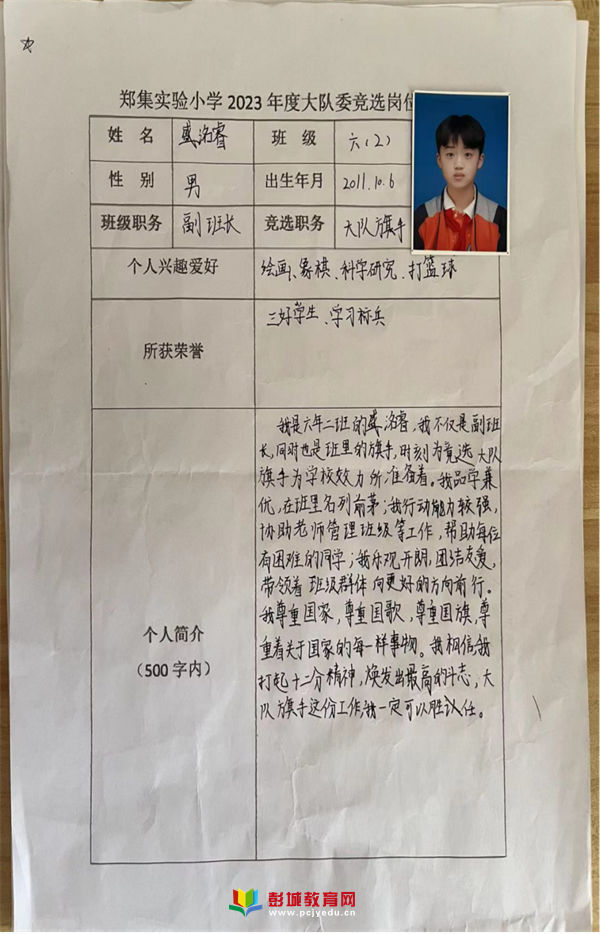 郑集实验小学2023年度大队委竞选岗位
姓 名 盛洺睿 班 级 六(2)
性 别 男 出生年月 2011.10.6
班级职务 副班长 竞选职务 大队旗手
个人兴趣爱好 绘画、象棋、科学研究、打篮球
所获荣誉 三好学生、学习标兵
个人简介
(500字内)
我是六年二班的盛洺睿,我不仅是副班
长,同时也是班里的旗手,时刻为竟选大队
旗手为学校效力所准备着。我品学兼
优,在班里名列前茅;我行动能力较强,
协助老师管理班级等工作,帮助每位
有困难的同学;我乐观开朗,团结友爱,
带领着班级群体向更好的方向前行。
我尊重国家,尊重国歌,尊重国旗,尊
重着关于国家的每一样事物。我相信,我
打起十二分精神,焕发出最高的斗志,大
队旗手这份工作,我一定可以胜议任。
彭城教育网
www.pcjyedu.cn